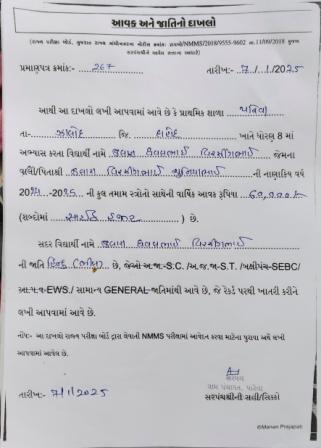 આવક અને જાતિનો દાખલો
(રાજ્ય પરીક્ષા બોર્ડ, ગુજરાત રાજ્ય ગાંધીનગરના નોટીસ ક્રમાંક: રાપબો/NMMS/2018/9555-9602 તા.11/09/2018 મુજબ
સરપંચશ્રીને આવેલ સત્તાના આધારે)
પ્રમાણપત્ર ક્રમાંક:- 267 તારીખ:- 7/1/2025
આથી આ દાખલો લખી આપવામાં આવે છે કે પ્રાથમિક શાળા
તા- ઝાલોદ જિ. દાહોદ ખાતે ધોરણ 8 માં
અભ્યાસ કરતા વિદ્યાર્થી નામે જેમના
વાલી/પિતાશ્રી ની નાણાકિય વર્ષ
20 ની કુલ તમામ સ્ત્રોતો સાથેની વાર્ષિક આવક રૂપિયા 60,000/-
(શબ્દોમાં સાઈઠ હજાર ) છે.
સદર વિદ્યાર્થી નામે
ની જાતિ હિન્દુ (ભીલ) છે, જેઓ અ.જા.-S.C. /અ.જ.જા-S.T. /બક્ષીપંચ-SEBC/
આ.પ.વ-EWS./ સામાન્ય GENERAL જાતિમાંથી આવે છે, જે રેકર્ડ પરથી ખાતરી કરીને
લખી આપવામાં આવે છે.
નોંધ:- આ દાખલો રાજ્ય પરીક્ષા બોર્ડ દ્વારા લેવાતી NMMS પરીક્ષામાં આવેદન કરવા માટેના પુરાવા અર્થે લખી
આપવામાં આવેલ છે.
સરપંચ
ગ્રામ પંચાયત,
તારીખ:- 7/1/2025 સરપંચશ્રીની સહી/સિક્કો
©Manan Prajapati